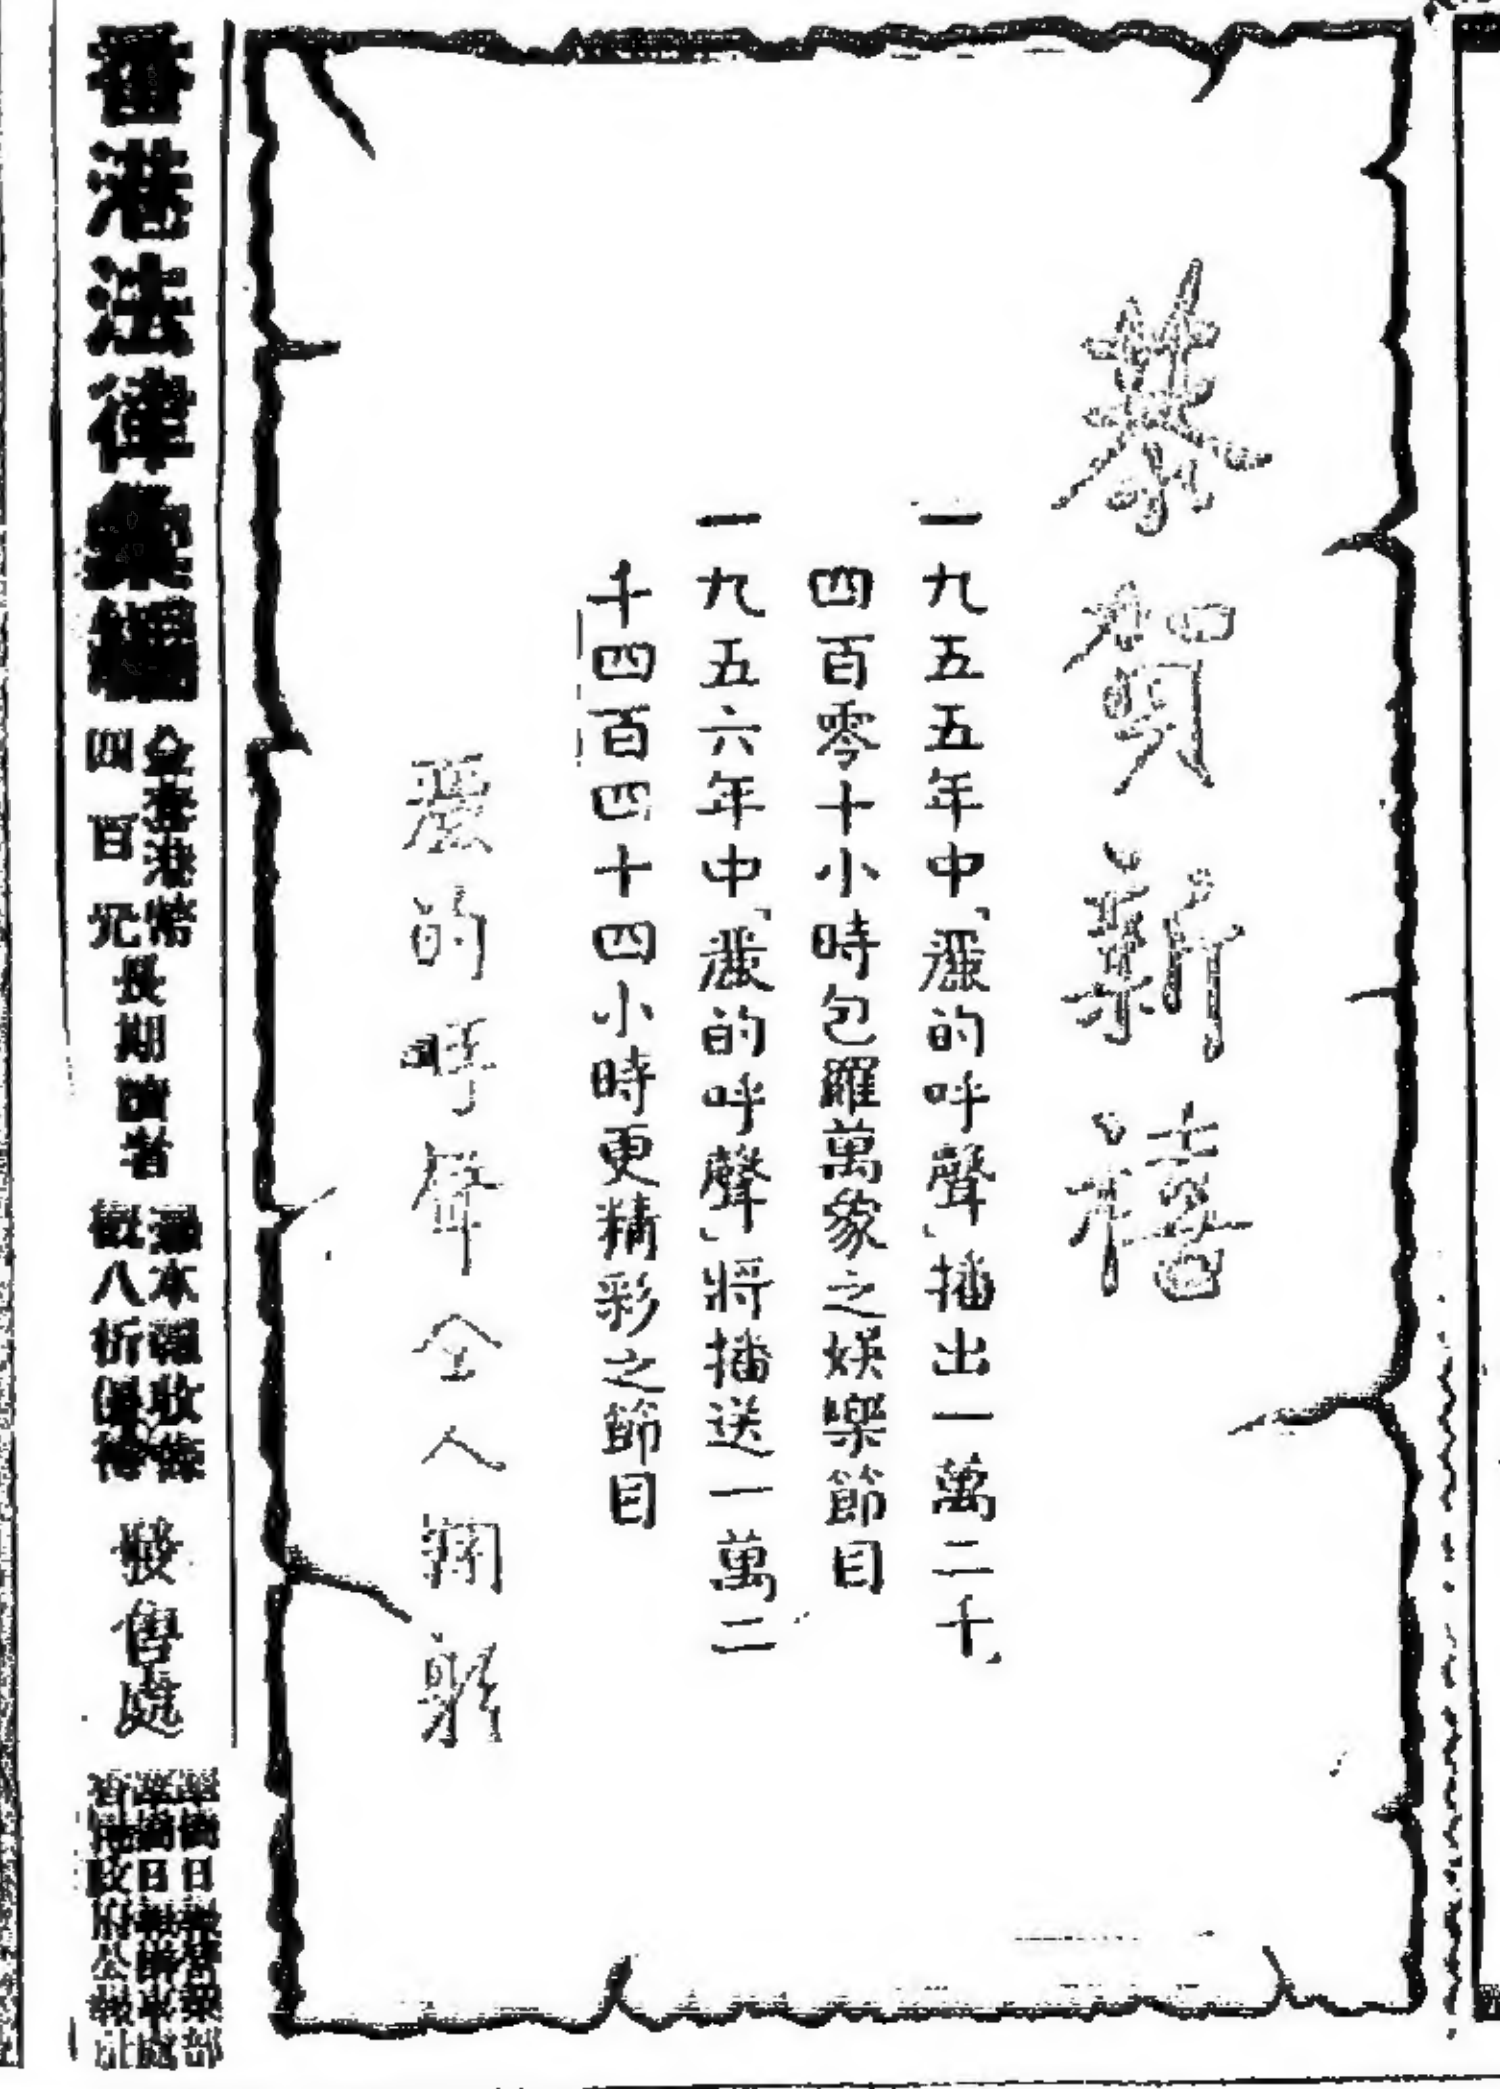 恭賀新禧
一九五五年中「麗的呼聲」播出一萬二千
四百零十小時包羅萬象之娛樂節目
一九五六年中「麗的呼聲」將播送一萬二
千四百四十四小時更精彩之節目
麗的呼聲全人鞠躬
香港法律彙編
全套港幣
四百元
長期讀者
憑本報收條
概八折優待
發售處
華僑日報營業部
華僑日報辦事處
香港政府公報社